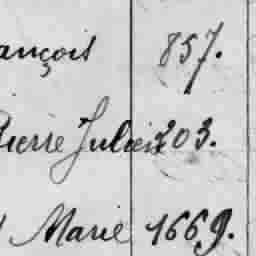 ançois 857.
Pierre Julien 203.
Marie 1669.